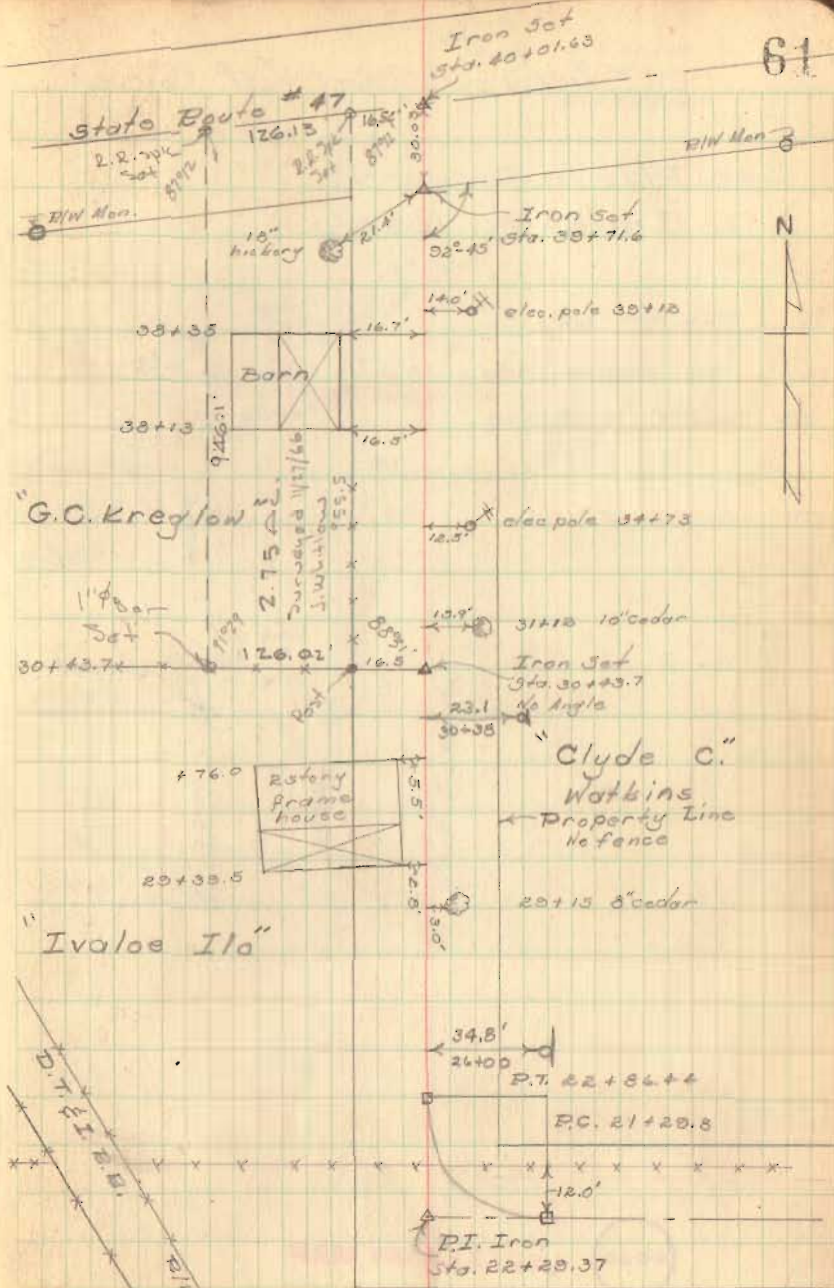 61
Iron Set
Sta. 40+01.63
State Route #47
126.13
16.5'
30.03'
R.R. Spk
Set
R.R. Spk
Set
87°12
87°12
R/W Mon.
R/W Mon.
18"
hickory
21.4'
Iron Set
Sta. 39+71.6
92°-45'
N
14.0'
elec. pole 39+18
38+35
16.7'
Barn
38+13
16.5'
946.1'
2.75 Ac.
Surveyed 11/27/66
J. Whitlow
955.5
"G.C. Kreglow"
12.5'
elec pole 34+73
1" ∅ Bar
Set
15.9'
31+18 10" cedar
30+43.7
126.02'
16.5
Post
Iron Set
Sta. 30+43.7
No Angle
23.1
30+38
"Clyde C."
Watkins
Property Line
No fence
+76.0
2 story
frame
house
5.5'
29+39.5
2.8'
29+15 8" cedar
3.0'
"Ivaloe Ilo"
34.8'
26+00
P.T. 22+86.44
P.C. 21+29.8
D.T. & I. R.R.
12.0'
P.I. Iron
Sta. 22+29.37